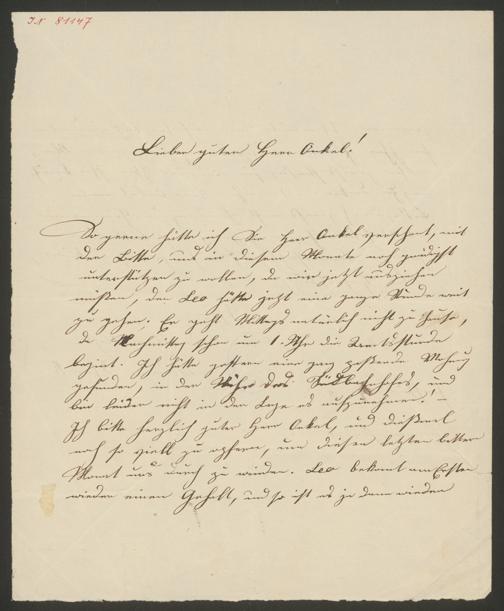 I.N 81147
Lieber guter Herr Onkel!
So gerne hätte ich Sie Herr Onkel verschont, mit
der Bitte, uns in diesem Monate noch gnädigst
unterstützen zu wollen, da wir jetzt ausziehen
müssen, den Leo hätte jetzt eine ganze Stunde weit
zu gehen. Er geht Mittags natürlich nicht zu Hause,
da Nachmittag schon um 1 Uhr die Amtsstunde
beginnt. Ich hätte gestern eine ganz passende Wohnung
gefunden, in der Nähe des Südbahnhofes, und
bin leider nicht in der Lage es aufzunehmen! –
Ich bitte herzlich guter Herr Onkel, uns diesmal
noch so viel zu opfern, um diesen letzten bittern
Monat uns durch zu winden. Leo bekommt am Ersten
wieder einen Gehalt, und so ist es ja dann wieder